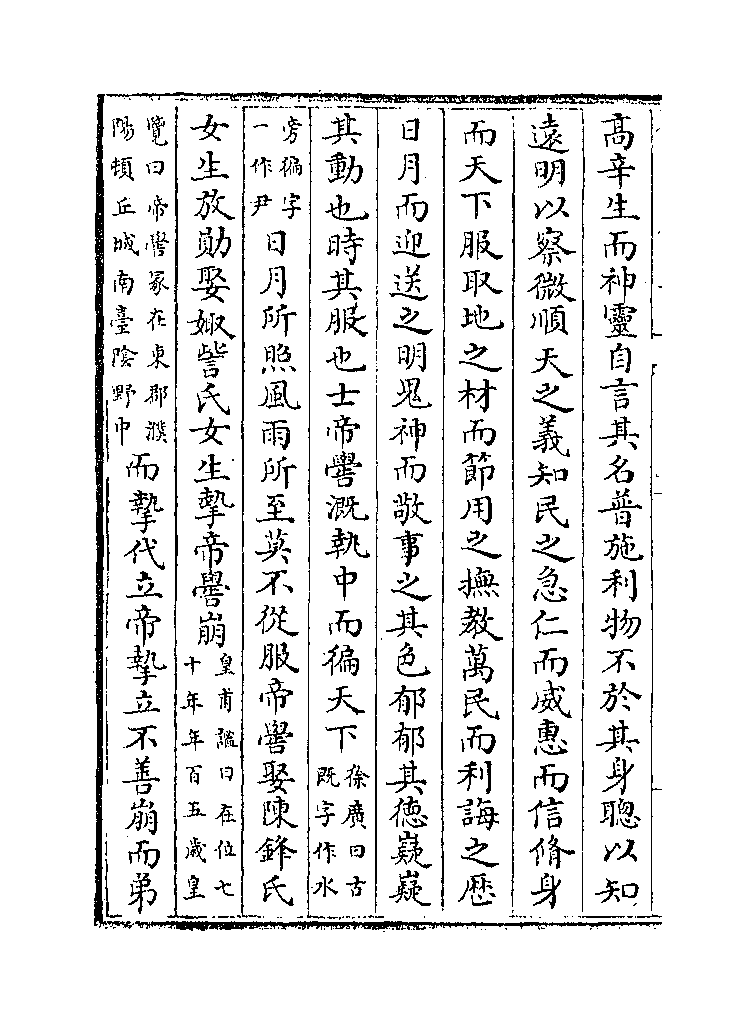 高辛生而神靈自言其名普施利物不於其身聰以知
遠明以察微順天之義知民之急仁而威惠而信脩身
而天下服取地之材而節用之撫教萬民而利誨之歴
日月而迎送之明鬼神而敬事之其色郁郁其徳嶷嶷
其動也時其服也士帝嚳溉執中而徧天下徐廣曰古既字作水
旁徧字一作尹日月所照風雨所至莫不從服帝嚳娶陳鋒氏
女生放勛娶娵訾氏女生摯帝嚳崩皇甫謐曰在位七十年年百五歲皇
覽曰帝嚳冢在東郡濮陽頓丘城南臺陰野中而摯代立帝摯立不善崩而弟